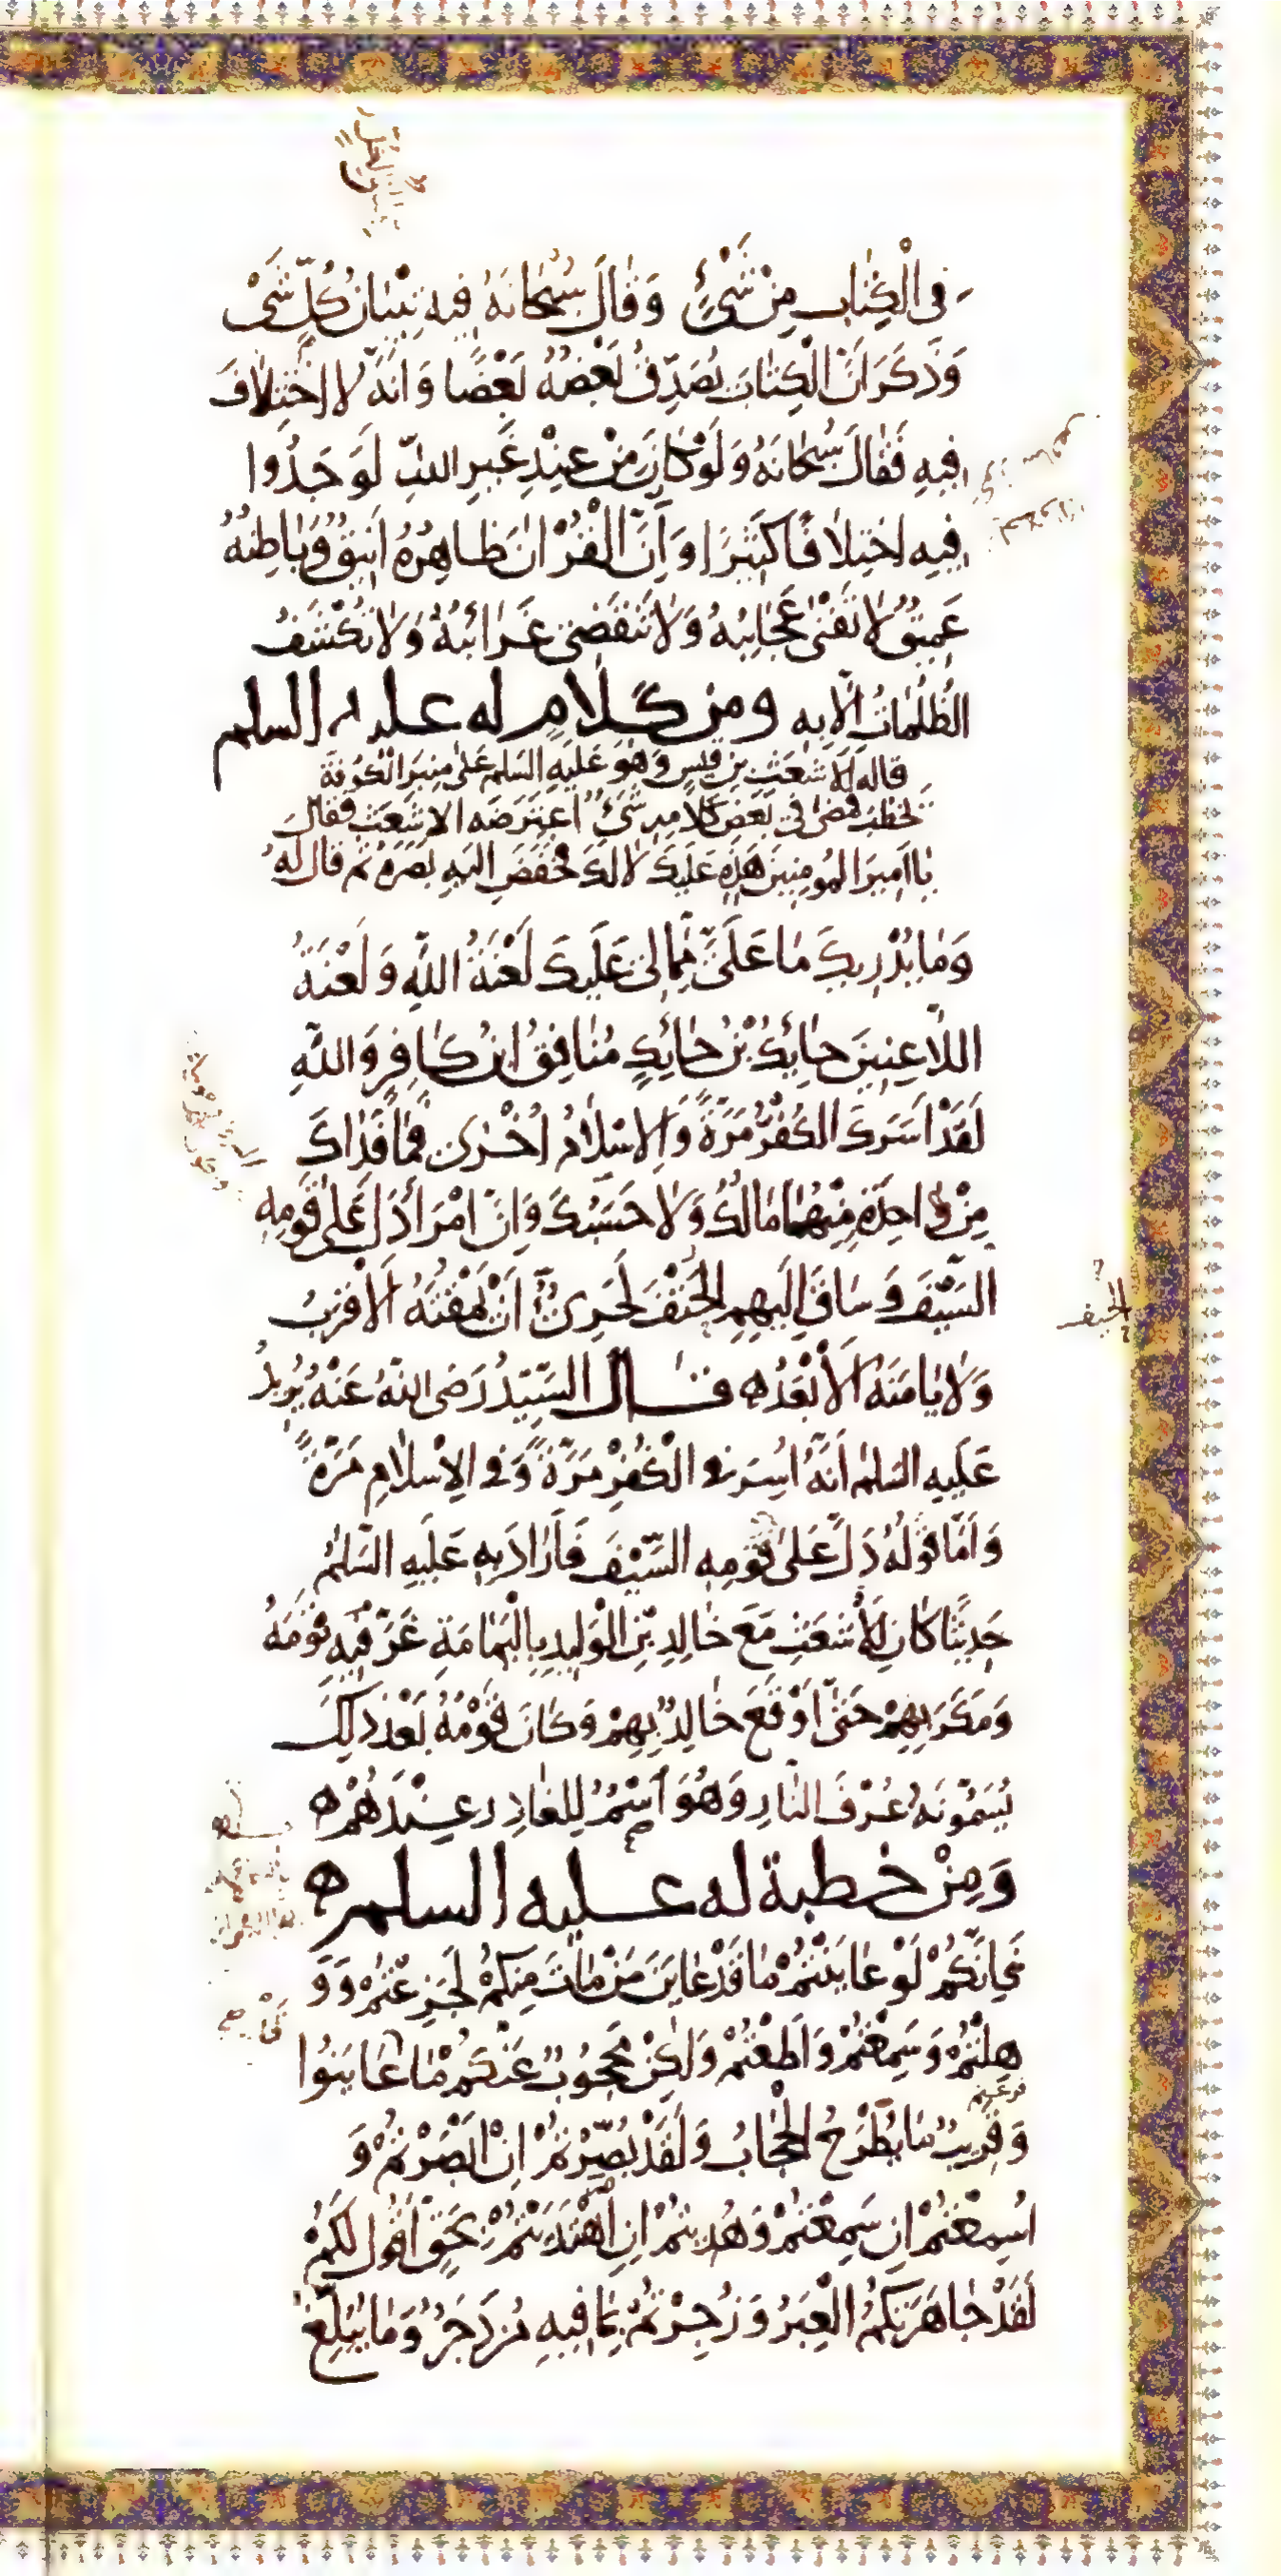 فِي الْكِتَابِ مِنْ شَيْءٍ وَقَالَ سُبْحَانَهُ فِيهِ تِبْيَانُ كُلِّ شَيْءٍ
وَذَكَرَ أَنَّ الْكِتَابَ يُصَدِّقُ بَعْضُهُ بَعْضًا وَأَنَّهُ لَا اخْتِلَافَ
فِيهِ فَقَالَ سُبْحَانَهُ وَلَوْ كَانَ مِنْ عِنْدِ غَيْرِ اللَّهِ لَوَجَدُوا
فِيهِ اخْتِلَافًا كَثِيرًا وَإِنَّ الْقُرْآنَ ظَاهِرُهُ أَنِيقٌ وَبَاطِنُهُ
عَمِيقٌ لَا تَفْنَى عَجَائِبُهُ وَلَا تَنْقَضِي غَرَائِبُهُ وَلَا تُكْشَفُ
الظُّلُمَاتُ إِلَّا بِهِ ومِنْ كَلَامٍ له عليه السلم
قاله لِلْأَشْعَثِ بْنِ قَيْسٍ وَهُوَ عَلَيْهِ السَّلم عَلَى مِنْبَرِ الْكُوفَةِ
يَخْطُبُ فَمَضَى فِي بَعْضِ كَلَامِهِ شَيْءٌ اعْتَرَضَهُ الْأَشْعَثُ فَقَالَ
يَا أَمِيرَ الْمُومِنِينَ هَذِهِ عَلَيْكَ لَا لَكَ فَخَفَضَ إِلَيْهِ بَصَرَهُ ثُمَّ قَالَ لَهُ
وَمَا يُدْرِيكَ مَا عَلَيَّ مِمَّا لِي عَلَيْكَ لَعْنَةُ اللَّهِ وَلَعْنَةُ
اللَّاعِنِينَ حَائِكُ بْنُ حَائِكٍ مُنَافِقُ ابْنُ كَافِرٍ وَاللَّهِ
لَقَدْ أَسَرَكَ الْكُفْرُ مَرَّةً وَالْإِسْلَامُ أُخْرَى فَمَا فَدَاكَ
مِنْ وَاحِدَةٍ مِنْهُمَا مَالُكَ وَلَا حَسَبُكَ وَإِنَّ امْرَأً دَلَّ عَلَى قَوْمِهِ
السَّيْفَ وَسَاقَ إِلَيْهِمُ الْحَتْفَ لَحَرِيٌّ أَنْ يَمْقُتَهُ الْأَقْرَبُ
وَلَا يَأْمَنَهُ الْأَبْعَدُ ه قَالَ السَّيِّدُ رَضِيَ اللَّهُ عَنْهُ يُرِيدُ
عَلَيْهِ السَّلم أَنَّهُ أُسِرَ فِي الْكُفْرِ مَرَّةً وَفِي الْإِسْلَامِ مَرَّةً
وَأَمَّا قَوْلُهُ دَلَّ عَلَى قَوْمِهِ السَّيْفَ فَأَرَادَ بِهِ عَلَيْهِ السَّلم
حَدِيثًا كَانَ لِلْأَشْعَثِ مَعَ خَالِدِ بْنِ الْوَلِيدِ بِالْيَمَامَةِ غَرَّ فِيهِ قَوْمَهُ
وَمَكَرَ بِهِمْ حَتَّى أَوْقَعَ خَالِدٌ بِهِمْ وَكَانَ قَوْمُهُ بَعْدَ ذَلِكَ
يُسَمُّونَهُ عُرْفَ النَّارِ وَهُوَ اسْمٌ لِلْغَادِرِ عِنْدَهُمْ ه
وَمِنْ خطبة له عليه السلم ه
فَإِنَّكُمْ لَوْ عَايَنْتُمْ مَا قَدْ عَايَنَ مَنْ مَاتَ مِنْكُمْ لَجَزِعْتُمْ وَوَ
هِلْتُمْ وَسَمِعْتُمْ وَأَطَعْتُمْ وَلَكِنْ مَحْجُوبٌ عَنْكُمْ مَا عَايَنُوا
وَقَرِيبٌ مَا يُطْرَحُ الْحِجَابُ وَلَقَدْ بُصِّرْتُمْ إِنْ أَبْصَرْتُمْ وَ
أُسْمِعْتُمْ إِنْ سَمِعْتُمْ وَهُدِيتُمْ إِنِ اهْتَدَيْتُمْ بِحَقٍّ أَقُولُ لَكُمْ
لَقَدْ جَاهَرَتْكُمُ الْعِبَرُ وَزُجِرْتُمْ بِمَا فِيهِ مُزْدَجَرٌ وَمَا يُبَلِّغُ